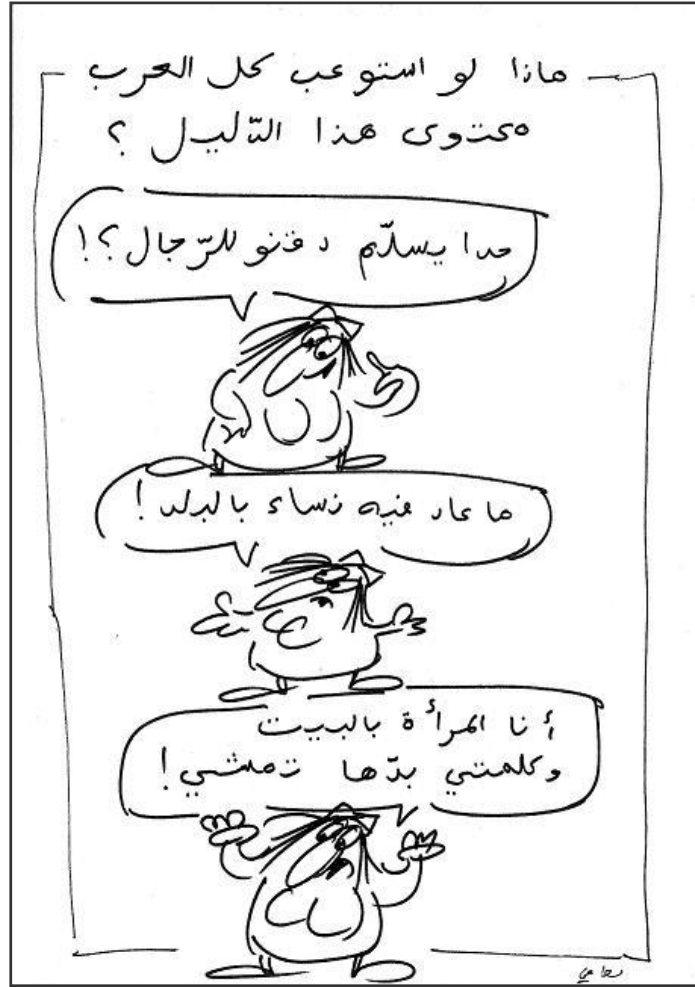 ماذا لو استوعب كل العرب
محتوى هذا الدّليل ؟
حدا يسلّم دقنو للرّجال؟!
ما عاد فيه نساء بالبلد!
أنا المرأة بالبيت
وكلمتي بدّها تمشي!